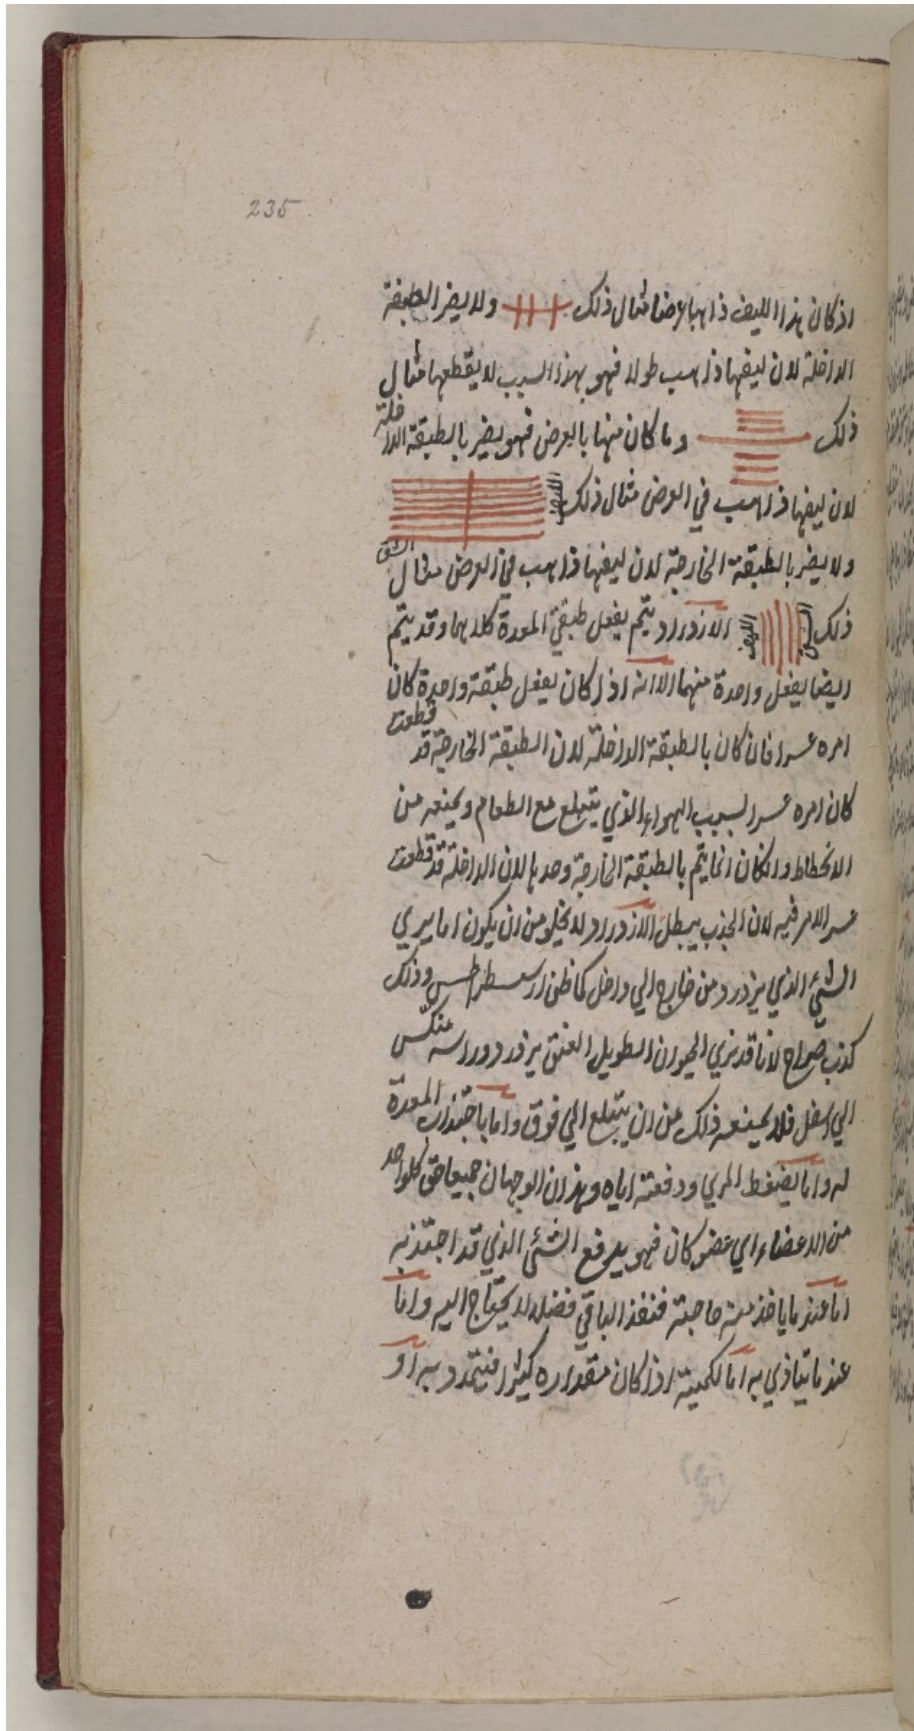 235
اذ كان هذا الليف ذاهبا لاضا مثال ذلك ولا يضر الطبقة
الداخلة لان ليفها ذاهب طولا فهو بهذا السبب لا يقطعها مثال
ذلك وما كان منها بالعرض فهو يضر بالطبقة الداخلة
لان ليفها ذاهب في العرض مثال ذلك الليف
الشق
ولا يضر بالطبقة الخارجة لان ليفها ذاهب في العرض مثال
ذلك الليف الازدراد يتم بفعل طبقتي المعدة كلاهما وقد يتم
ايضا بفعل واحدة منهما الا انه اذا كان بفعل طبقة واحدة كان
امره عسرا فان كان بالطبقة الداخلة لان الطبقة الخارجة قد قطعت
كان امره عسرا لسبب الهواء الذي يبتلع مع الطعام ويمنعه من
الانحطاط وان كان انما يتم بالطبقة الخارجة وحدها لان الداخلة قد قطعت
عسر الامر فيه لان الجذب يبطل الازدراد ولا يخلو من ان يكون اما يرى
الشئ الذي يزدرد من خارج الي داخل كما ظن ارسسطراطس وذلك
كذب صراح لانا قد نري الحيوان الطويل العنق يزدرد وراسه منكس
الي اسفل فلا يمنعه ذلك من ان يبتلع الي فوق واما باجتذاب المعدة
له واما بضغط المري ودفعته اياه وهذان الوجهان جميعا حق كل واحد
من الاعضاء اي عضو كان فهو يدفع الشئ الذي قد اجتذبه
اما عند ما ياخذ منه حاجته فنفذ الباقي فضلا لا يحتاج اليه واما
عند ما يتاذي به اما لكميته اذا كان مقداره كثيرا فيتمدد به او